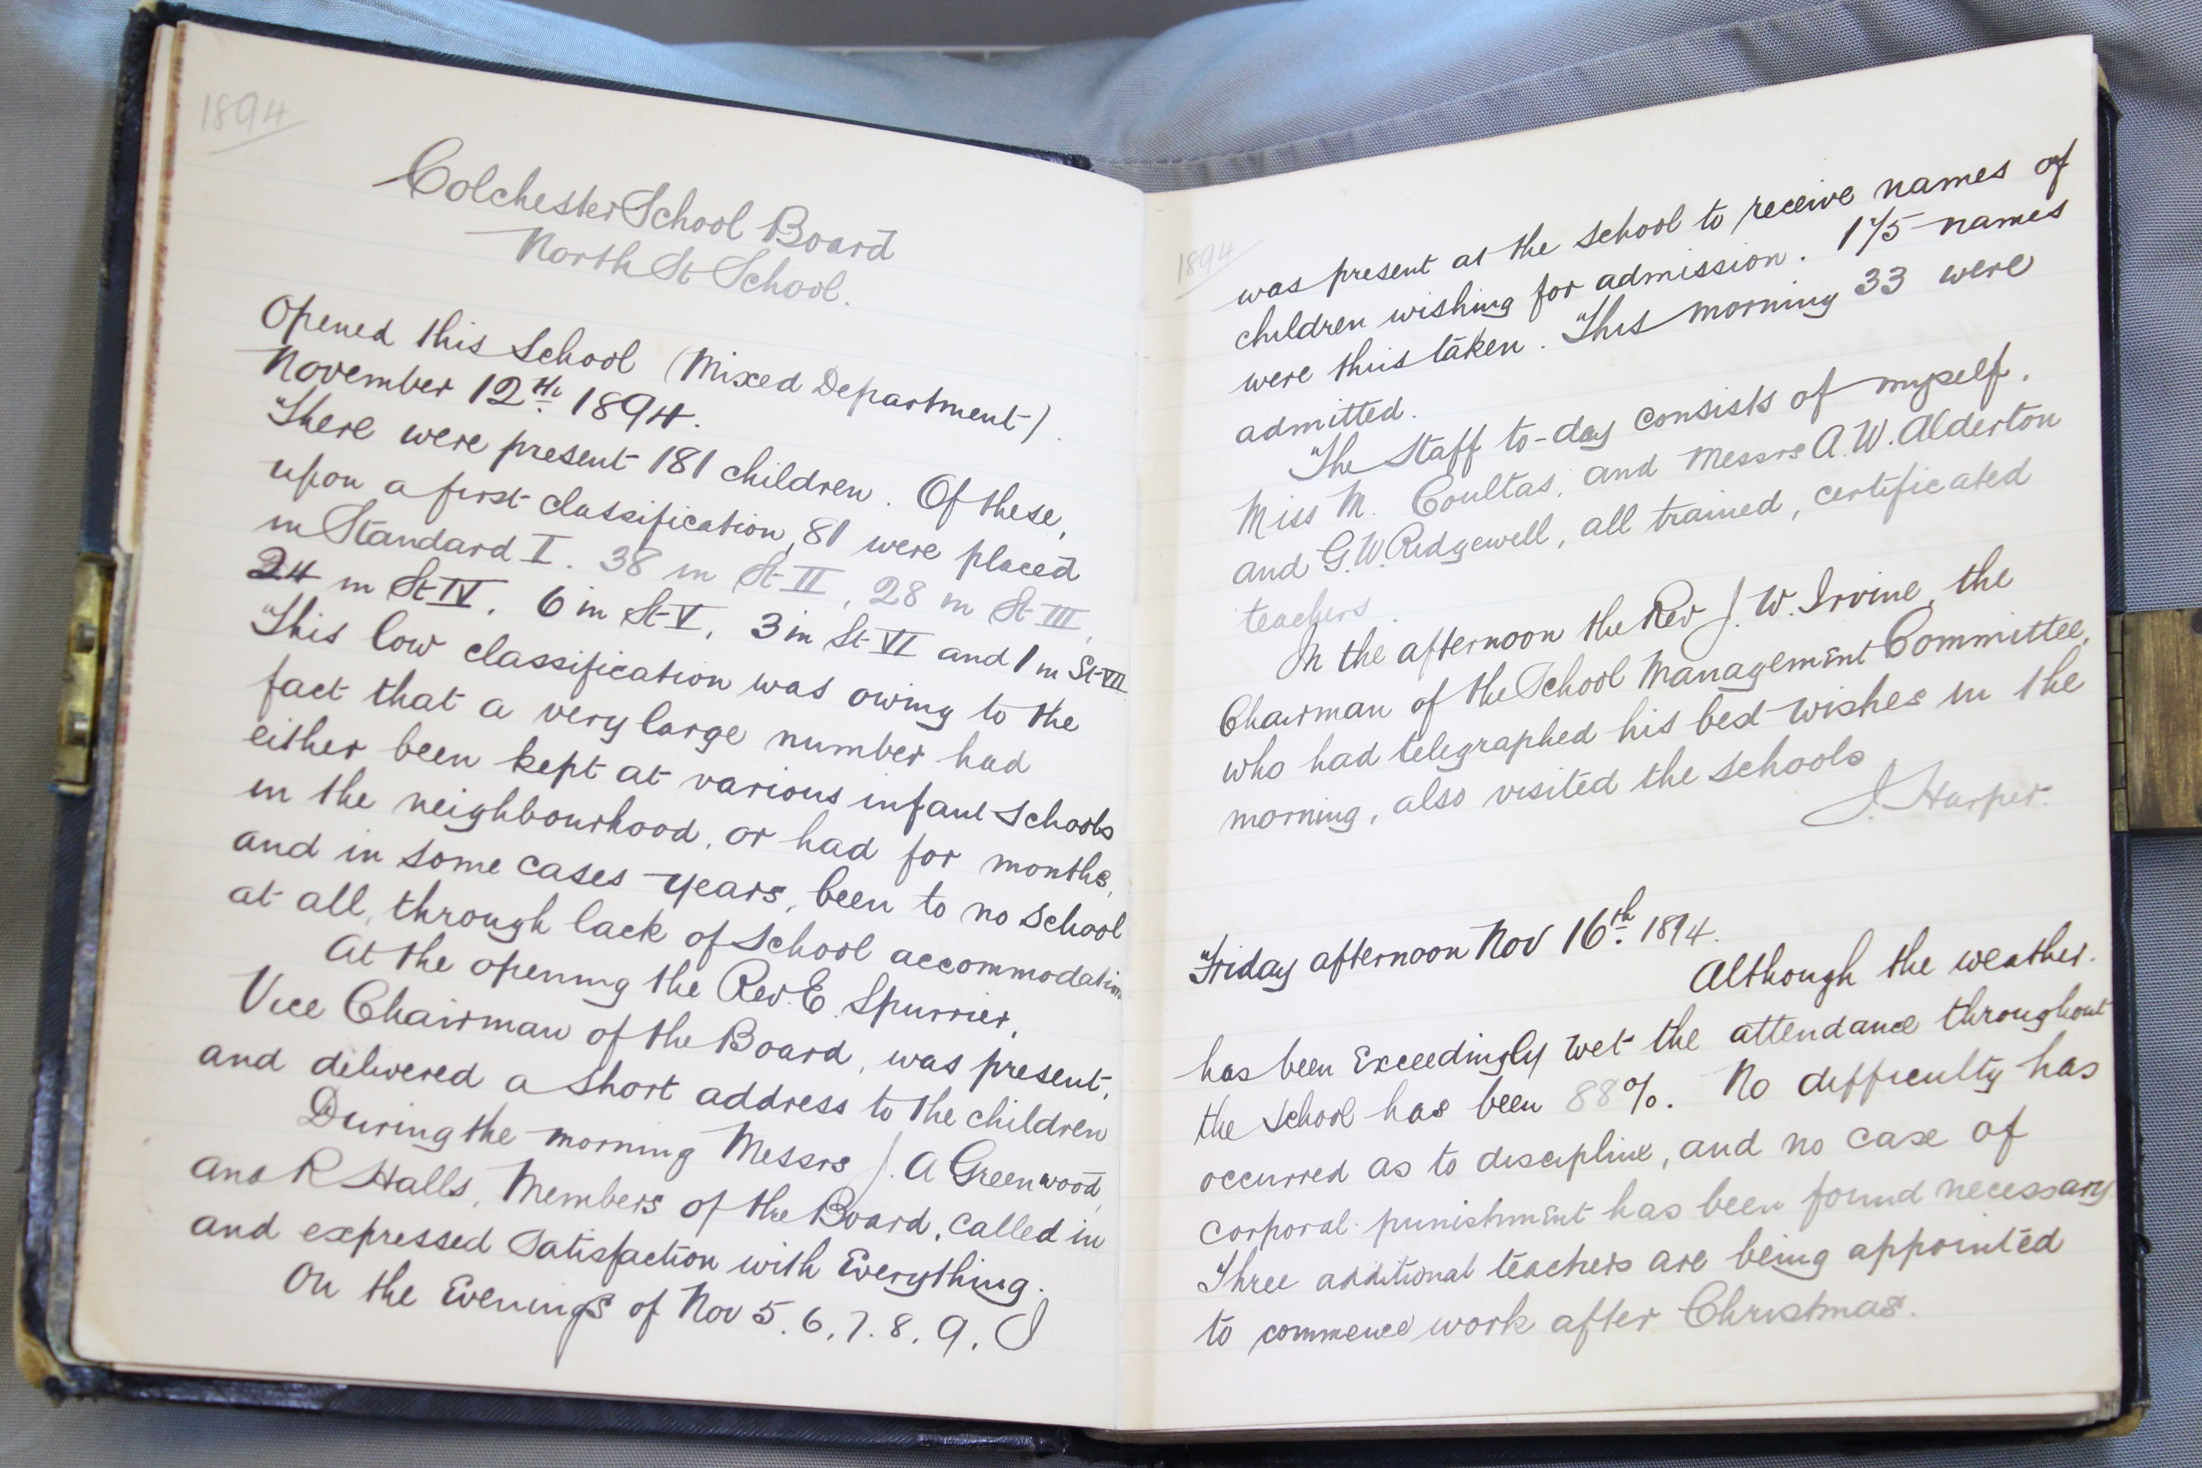 1894
Colchester School Board
North St School.
Opened this School (Mixed Department).
November 12th. 1894.
There were present 181 children. Of these,
upon a first classification, 81 were placed
in Standard I. 38 in St II, 28 in St III,
24 in St IV, 6 in St V, 3 in St VI and 1 in St VII
This low classification was owing to the
fact that a very large number had
either been kept at various infant schools
in the neighbourhood, or had for months,
and in some cases years, been to no school
at all, through lack of school accommodation
At the opening the Rev. E. Spurrier,
Vice Chairman of the Board, was present,
and delivered a short address to the children
During the morning Messrs J. A Greenwood,
and R Halls, Members of the Board, called in
and expressed satisfaction with Everything.
On the Evenings of Nov 5. 6. 7. 8. 9. I
1894
was present at the school to receive names of
children wishing for admission. 175 names
were thus taken. This morning 33 were
admitted.
The Staff to-day consists of myself,
Miss M. Coultas, and Messrs A. W. Alderton
and G. W. Ridgewell, all trained, certificated
teachers.
In the afternoon the Rev J. W. Irvine, the
Chairman of the School Management Committee,
who had telegraphed his best wishes in the
morning, also visited the schools
J. Harper.
Friday afternoon Nov 16th. 1894.
Although the weather.
has been Exceedingly wet the attendance throughout
the school has been 88%. No difficulty has
occurred as to discipline, and no case of
corporal punishment has been found necessary
Three additional teachers are being appointed
to commence work after Christmas.